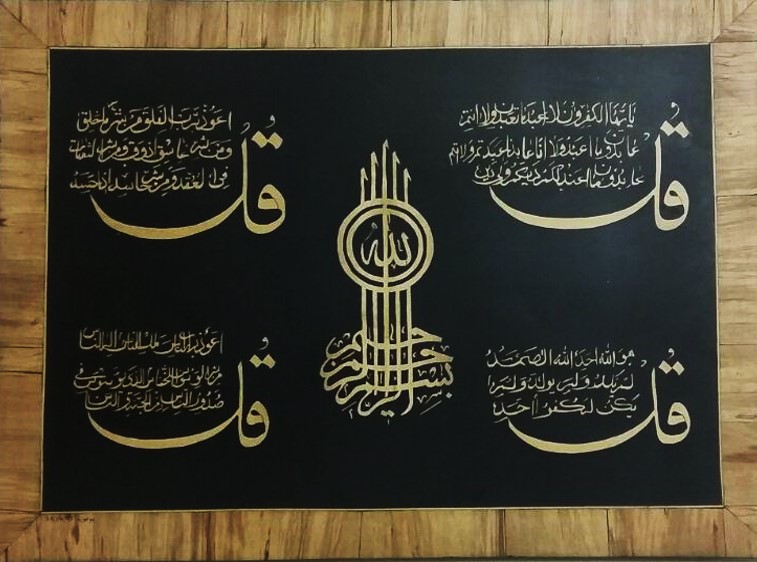 قُل
يايها الكفرون لا اعبد ما تعبدون ولا انتم
عابدون ما اعبد ولا انا عابد ما عبدتم ولا انتم
عابدون ما اعبد لكم دينكم ولي دين
الله
بسم الرحمن الرحيم
قُل
اعوذ برب الفلق من شر ما خلق
ومن شر غاسق اذا وقب ومن شر النفاثات
في العقد ومن شر حاسد اذا حسد
قُل
هو الله احد الله الصمد
لم يلد ولم يولد ولم
يكن له كفوا احد
قُل
اعوذ برب الناس ملك الناس اله الناس
من شر الوسواس الخناس الذي يوسوس في
صدور الناس من الجنة والناس